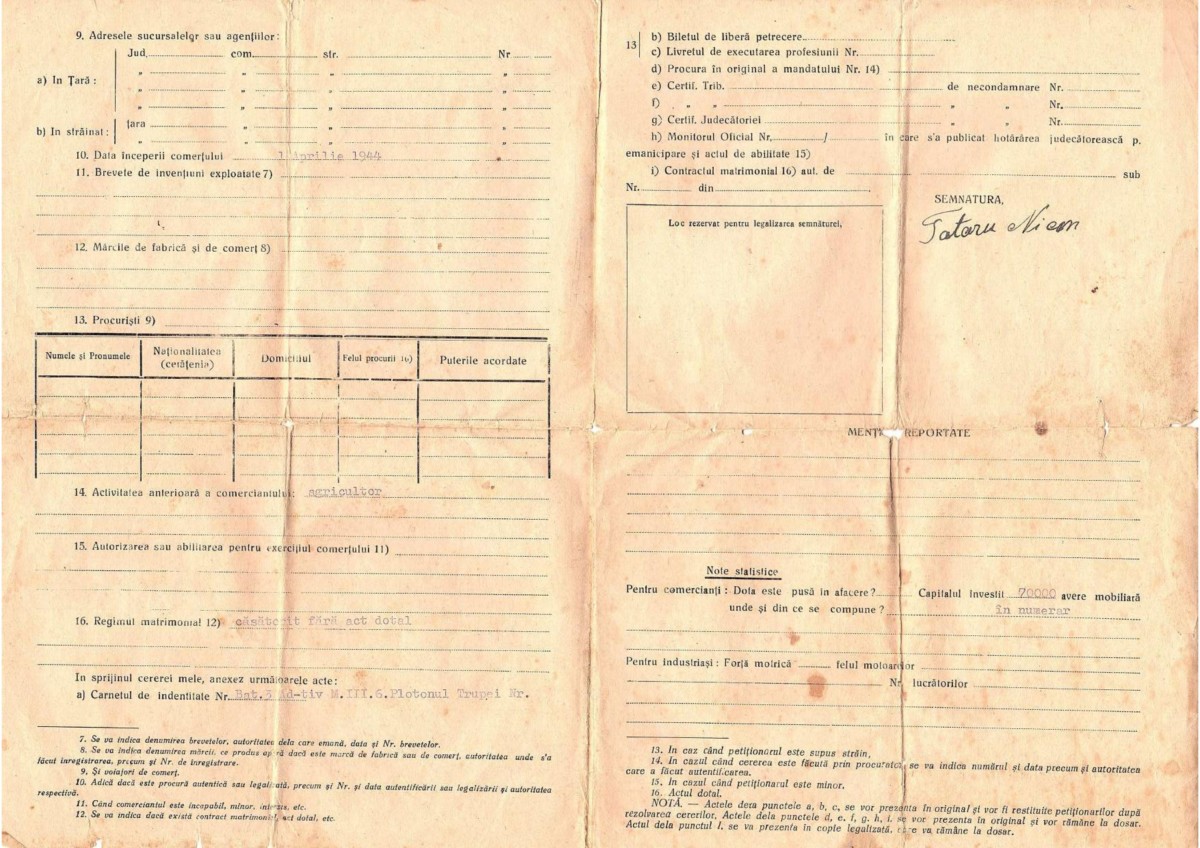 9. Adresele sucursalelor sau agențiilor:
Jud. com. str. Nr
a) In Țară:
" " " "
" " " "
" " " "
b) In străinat: țara " " "
" " " "
10. Data începerii comerțului 1 Aprilie 1944
11. Brevete de invențiuni exploatate 7)
12. Mărcile de fabrică și de comerț 8)
13. Procuriști 9)
Numele și Pronumele Naționalitatea (cetățenia) Domiciliul Felul procurii 16) Puterile acordate
14. Activitatea anterioară a comerciantului: agricultor
15. Autorizarea sau abilitarea pentru exercițiul comerțului 11)
16. Regimul matrimonial 12) căsătorit fără act dotal
In sprijinul cererei mele, anexez următoarele acte:
a) Carnetul de indentitate Nr. Bat.3 Ad-tiv M.III.6.Plotonul Trupei Nr.
7. Se va indica denumirea brevetelor, autoritatea dela care emună, data și Nr. brevetelor.
8. Se va indica denumirea mărcii, ce produs apără dacă este marcă de fabrică sau de comerț, autoritatea unde s'a
făcut inregistrarea, precum și Nr. de inregistrare.
9. Și voiajori de comerț.
10. Adică dacă este procură autentică sau legalizată, precum și Nr. și data autentificării sau legalizării și autoritatea
respectivă.
11. Când comerciantul este incapabil, minor, interzis, etc.
12. Se va indica dacă există contract matrimonial, act dotal, etc.
13 b) Biletul de liberă petrecere
c) Livretul de executarea profesiunii Nr.
d) Procura în original a mandatului Nr. 14)
e) Certif. Trib. de necondamnare Nr.
f) " " " " Nr.
g) Certif. Judecătoriei " " Nr.
h) Monitorul Oficial Nr. / în care s'a publicat hotărârea judecătorească p.
emanicipare și actul de abilitate 15)
i) Contractul matrimonial 16) aut. de sub
Nr. din
SEMNATURA,
Loc rezervat pentru legalizarea semnăturei,
Tataru Nicon
MENȚI REPORTATE
Note statistice
Pentru comercianți: Dota este pusă în afacere? Capitalul investit 70000 avere mobiliară
unde și din ce se compune? în numerar
Pentru industriași: Forță motrică felul motoarelor
Nr. lucrătorilor
13. In caz când petiționarul este supus străin,
14. In cazul când cererea este făcută prin procurator, se va indica numărul și data precum și autoritatea
care a făcut autentificarea.
15. In cazul când petiționarul este minor.
16. Actul dotal.
NOTĂ. — Actele dera punctele a, b, c, se vor prezenta în original și vor fi restituite petiționarilor după
rezolvarea cererilor, Actele dela punctele d, e, f, g, h, i. se vor prezenta în original și vor rămâne la dosar.
Actul dela punctul l, se va prezenta în copie legalizată, care va rămâne la dosar.